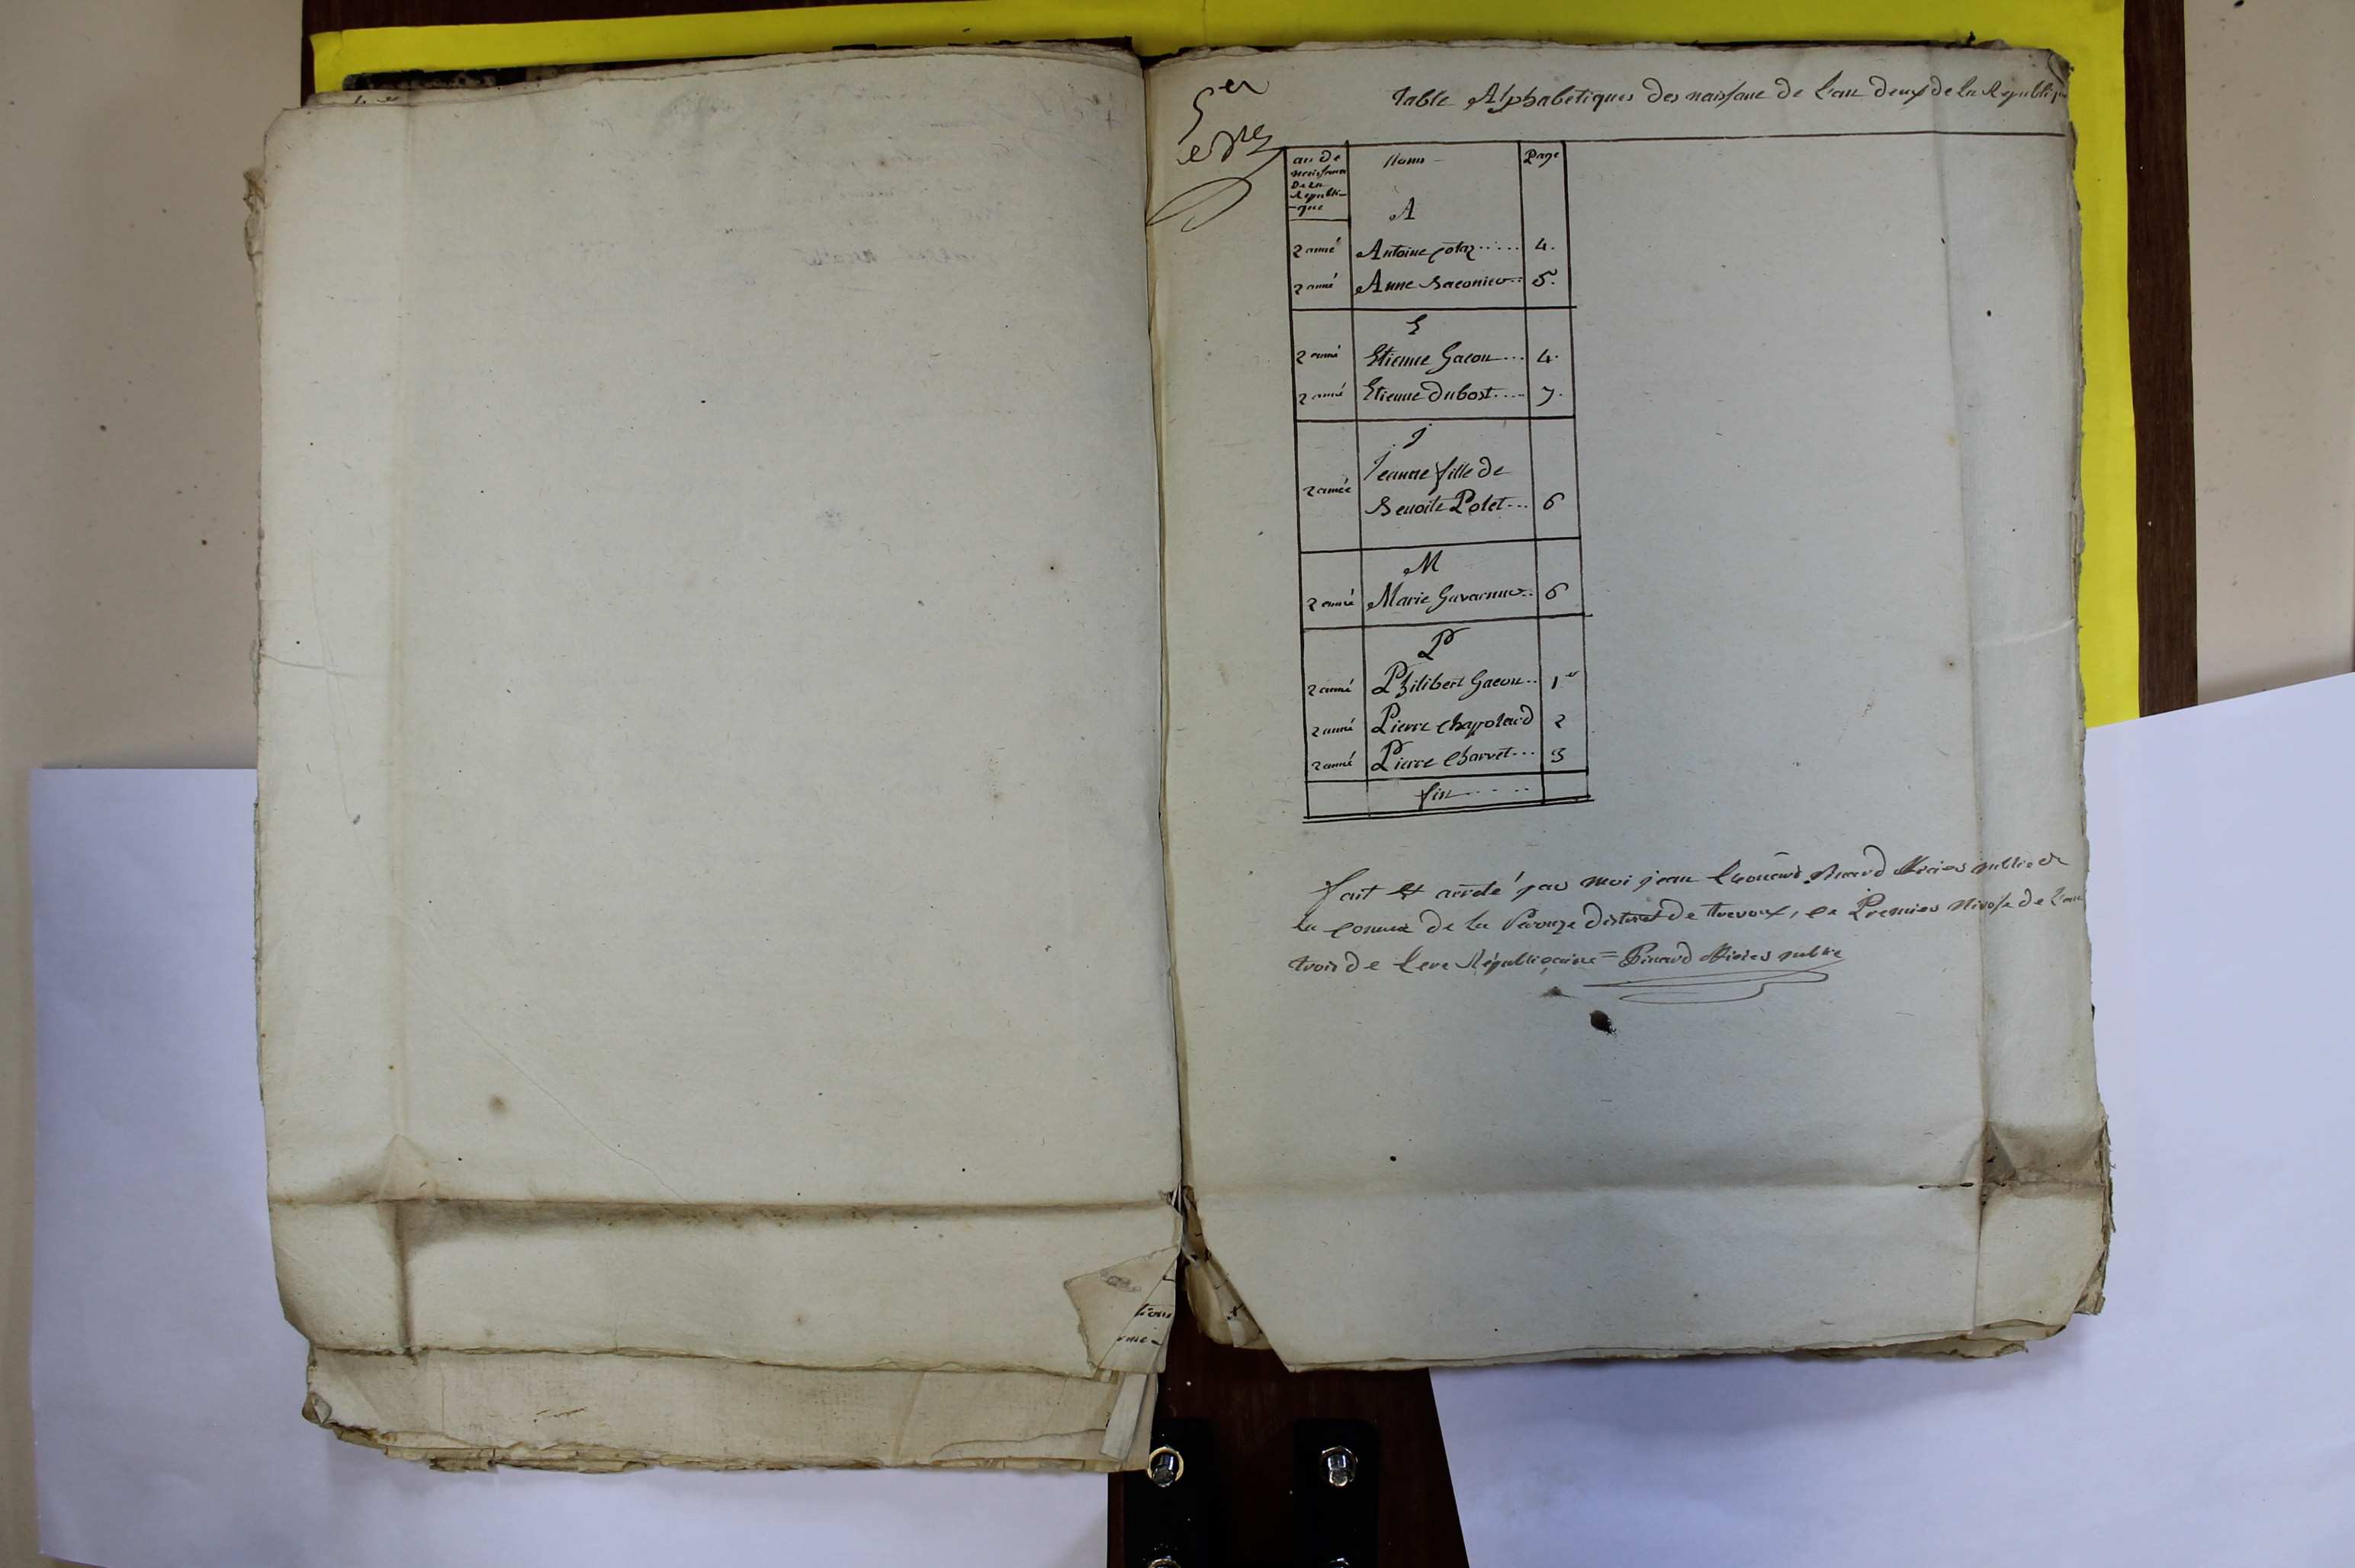 5er
Table Alphabetiques des naissance de L'an deux de la Republique
an de
naissance
de la
Republi-
-que
Noms
Page
A
2 anné Antoine 4.
2 anné Anne 5.
E
2 anné Etienne Gacon 4.
2 anné Etienne Dubost 7.
J
Jeanne fille de
2 année Benoite Polet 6
M
2 anné Marie 6
P
2 anné Philibert Gacon 1er
2 anné Pierre Chapolard 2
2 anné Pierre Charvet 3
fin
fait et arreté par moi jean Officier public de
la Comune de la Perouze District de Trevoux, ce Premier Nivose de L'an
trois de L'ere Républicaine = Officier public
tions